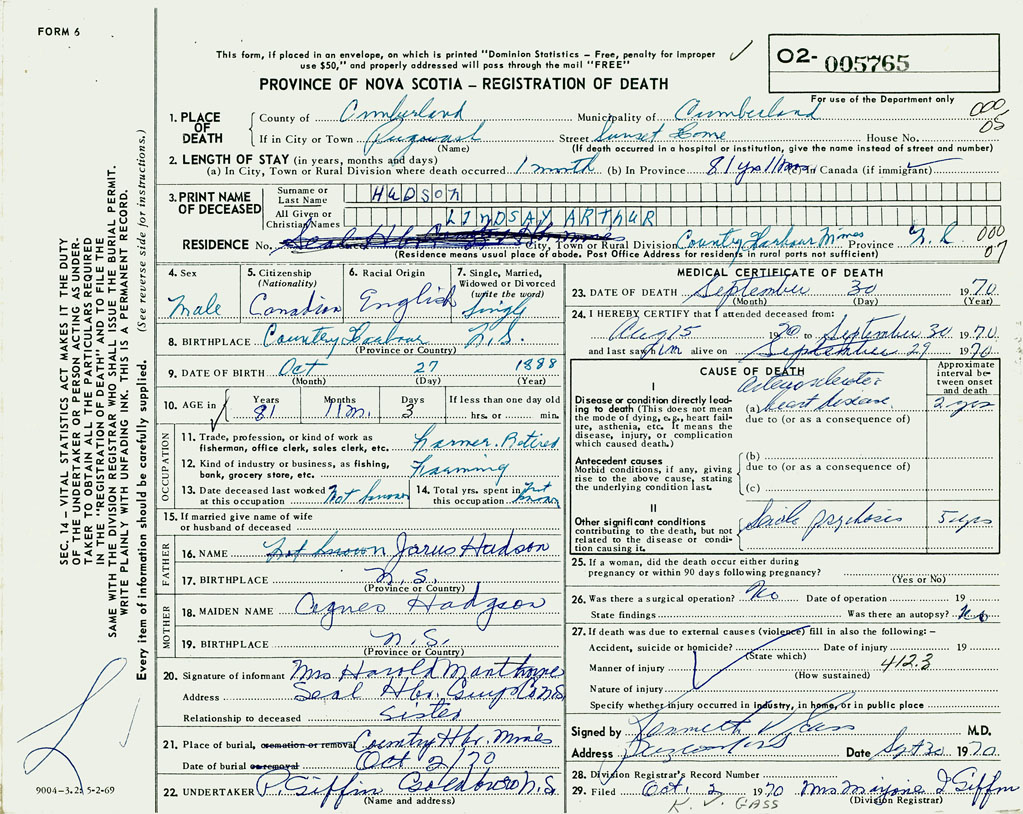 FORM 6
This form, if placed in an envelope, on which is printed "Dominion Statistics – Free, penalty for improper
use $50," and properly addressed will pass through the mail "FREE"
O2- 005765
PROVINCE OF NOVA SCOTIA – REGISTRATION OF DEATH
For use of the Department only
1. PLACE OF DEATH County of Cumberland Municipality of Cumberland 000
If in City or Town Pugwash Street Sunset Home House No. 05
(Name) (If death occurred in a hospital or institution, give the name instead of street and number)
2. LENGTH OF STAY (in years, months and days)
(a) In City, Town or Rural Division where death occurred 1 month (b) In Province 81 yrs 11 mos (c) in Canada (if immigrant)
3. PRINT NAME OF DECEASED
Surname or Last Name HUDSON
All Given or Christian Names LINDSAY ARTHUR
RESIDENCE No. City, Town or Rural Division Country Harbour Mines Province N.S. 000
(Residence means usual place of abode. Post Office Address for residents in rural parts not sufficient) 07
4. Sex Male
5. Citizenship (Nationality) Canadian
6. Racial Origin English
7. Single, Married, Widowed or Divorced (write the word) Single
8. BIRTHPLACE Country Harbour N.S.
(Province or Country)
9. DATE OF BIRTH Oct 27 1888
(Month) (Day) (Year)
10. AGE in Years 81 Months 11 m. Days 3 If less than one day old hrs. or min.
OCCUPATION
11. Trade, profession, or kind of work as fisherman, office clerk, sales clerk, etc. Farmer. Retired
12. Kind of industry or business, as fishing, bank, grocery store, etc. Farming
13. Date deceased last worked at this occupation Not known
14. Total yrs. spent in this occupation Not known
15. If married give name of wife or husband of deceased
FATHER
16. NAME not known Jarus Hudson
17. BIRTHPLACE N.S.
(Province or Country)
MOTHER
18. MAIDEN NAME Agnes Hudgson
19. BIRTHPLACE N.S.
(Province or Country)
20. Signature of informant Mrs Harold Manthorne
Address Seal Hbr. Guys Co N.S.
Relationship to deceased Sister
21. Place of burial, cremation or removal Country Hbr. Mines
Date of burial or removal Oct 2/70
22. UNDERTAKER P. Giffin Goldboro N.S.
(Name and address)
MEDICAL CERTIFICATE OF DEATH
23. DATE OF DEATH September 30 1970
(Month) (Day) (Year)
24. I HEREBY CERTIFY that I attended deceased from:
Aug 15 1970 to September 30 1970
and last saw him alive on September 29 1970
CAUSE OF DEATH
Approximate interval between onset and death
I
Disease or condition directly leading to death (This does not mean the mode of dying, e.g., heart failure, asthenia, etc. It means the disease, injury, or complication which caused death.)
(a) heart disease 2 yrs
due to (or as a consequence of)
Antecedent causes
Morbid conditions, if any, giving rise to the above cause, stating the underlying condition last.
(b)
due to (or as a consequence of)
(c)
II
Other significant conditions contributing to the death, but not related to the disease or condition causing it.
Senile psychosis 5 yrs
25. If a woman, did the death occur either during pregnancy or within 90 days following pregnancy?
(Yes or No)
26. Was there a surgical operation? No Date of operation 19
State findings Was there an autopsy? No
27. If death was due to external causes (violence) fill in also the following: –
Accident, suicide or homicide? Date of injury 19
(State which) 412.3
Manner of injury
(How sustained)
Nature of injury
Specify whether injury occurred in industry, in home, or in public place
Signed by Kenneth V. Gass M.D.
Address Date Sept 30 1970
28. Division Registrar's Record Number
29. Filed Oct. 2 1970 Mrs Marjorie I Giffin
K. V. GASS (Division Registrar)
SEC. 14 – VITAL STATISTICS ACT MAKES IT THE DUTY
OF THE UNDERTAKER OR PERSON ACTING AS UNDER-
TAKER TO OBTAIN ALL THE PARTICULARS REQUIRED
IN THE "REGISTRATION OF DEATH" AND TO FILE THE
SAME WITH THE DIVISION REGISTRAR WHO SHALL ISSUE THE BURIAL PERMIT.
WRITE PLAINLY WITH UNFADING INK. THIS IS A PERMANENT RECORD.
Every item of information should be carefully supplied. (See reverse side for instructions.)
9004-3.2: 5-2-69